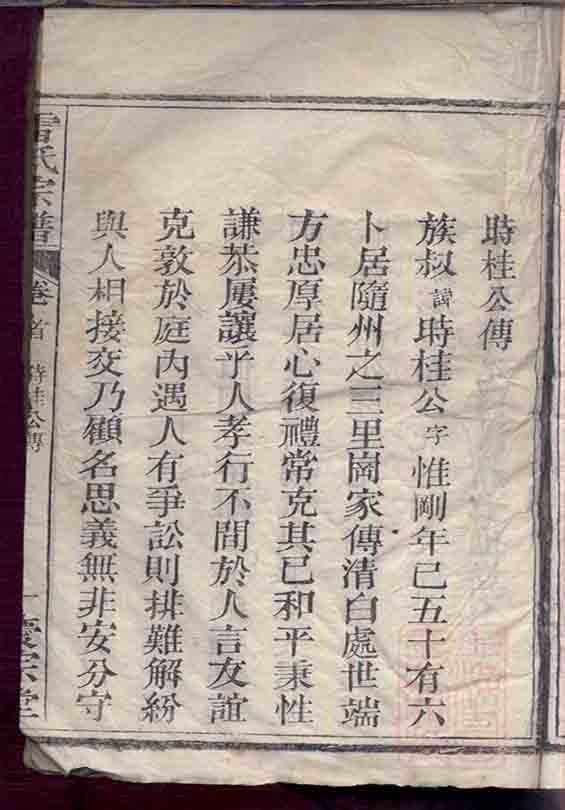 時桂公傳
族叔諱時桂公字惟剛年已五十有六
卜居隨州之三里崗家傳清白處世端
方忠厚居心復禮常克其己和平秉性
謙恭屢讓乎人孝行不間於人言友誼
克敦於庭內遇人有爭訟則排難解紛
與人相接交乃顧名思義無非安分守
氏宗譜 卷首 時桂公傳 一